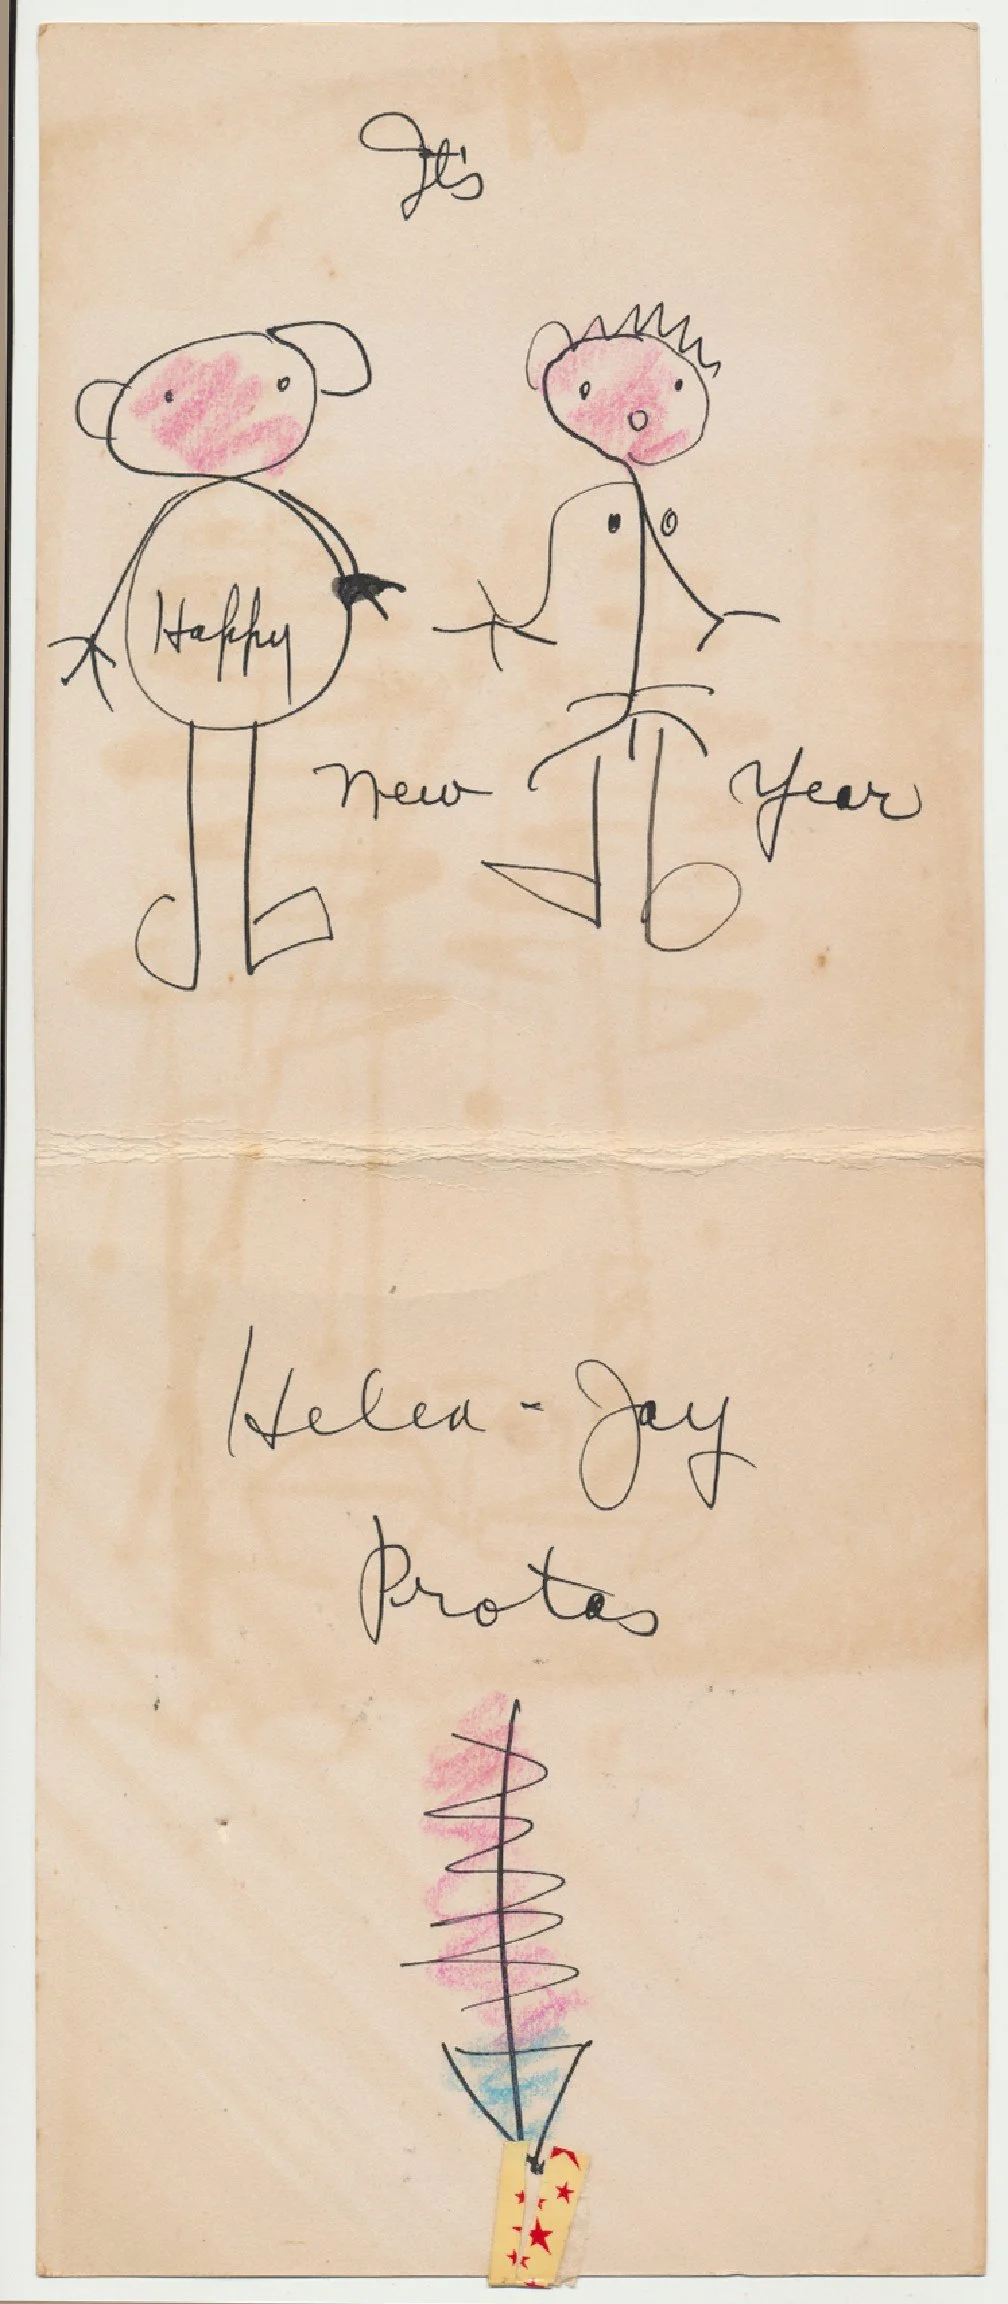 It's
Happy
New Year
Helen - Jay
Protas